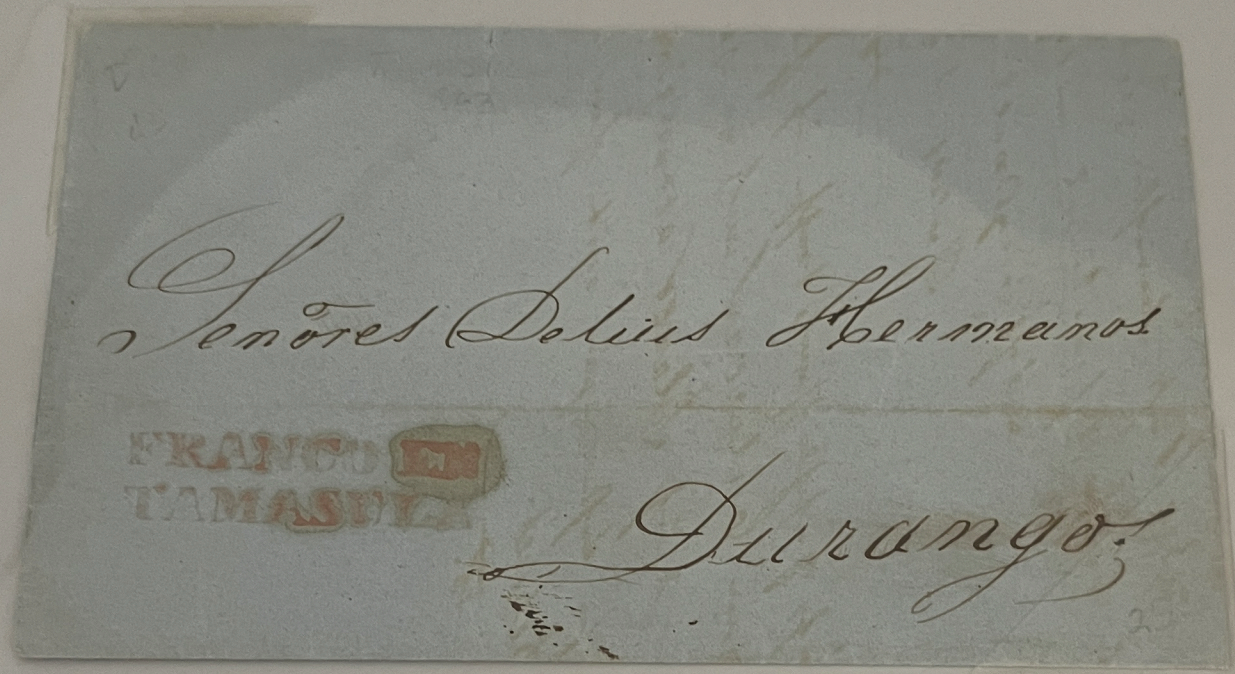 Señores Delius Hermanos
FRANCO EN
TAMASULA
Durango.